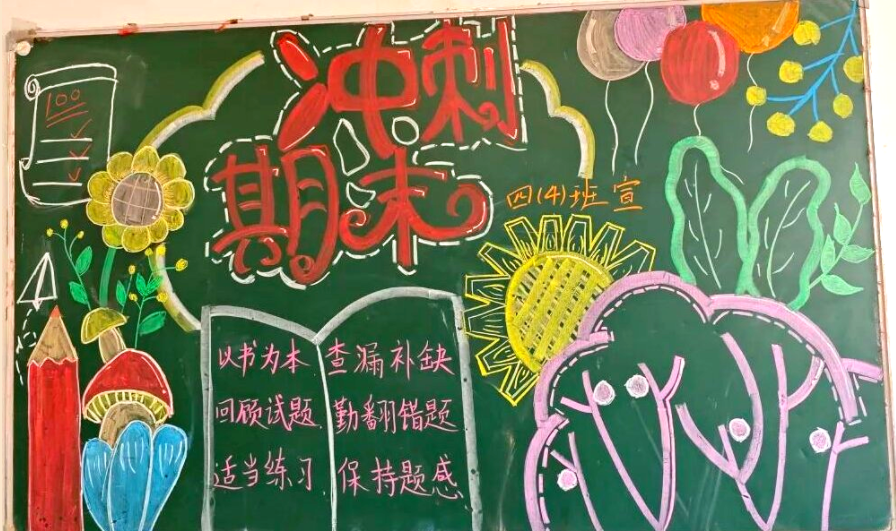 冲刺
期末
100
四(4)班宣
以书为本 查漏补缺
回顾试题 勤翻错题
适当练习 保持题感